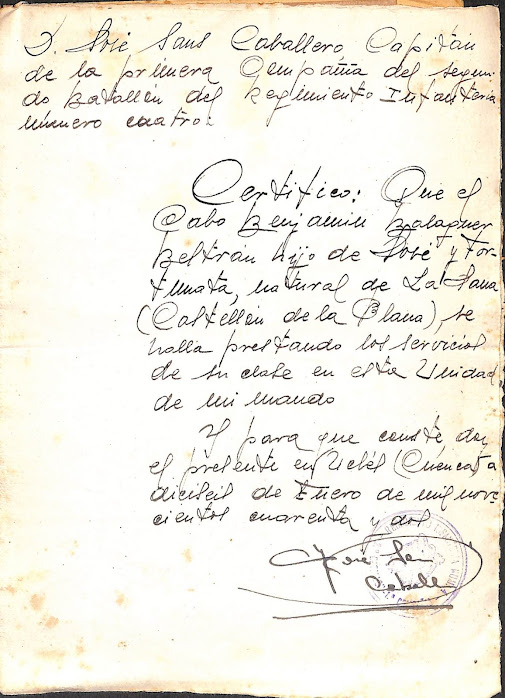 D. José Sans Caballero Capitán
de la primera Compañía del segun-
do Batallón del Regimiento Infantería
número cuatro.
Certifico: Que el
Cabo Benjamin Balaguer
Beltrán hijo de José y For-
tunata, natural de La Jana
(Castellón de la Plana), se
halla prestando los servicios
de su clase en esta Unidad
de mi mando
Y para que conste doy
el presente en Uclés (Cuenca) a
dieciseis de Enero de mil nove-
cientos cuarenta y dos
José Sans
Caball